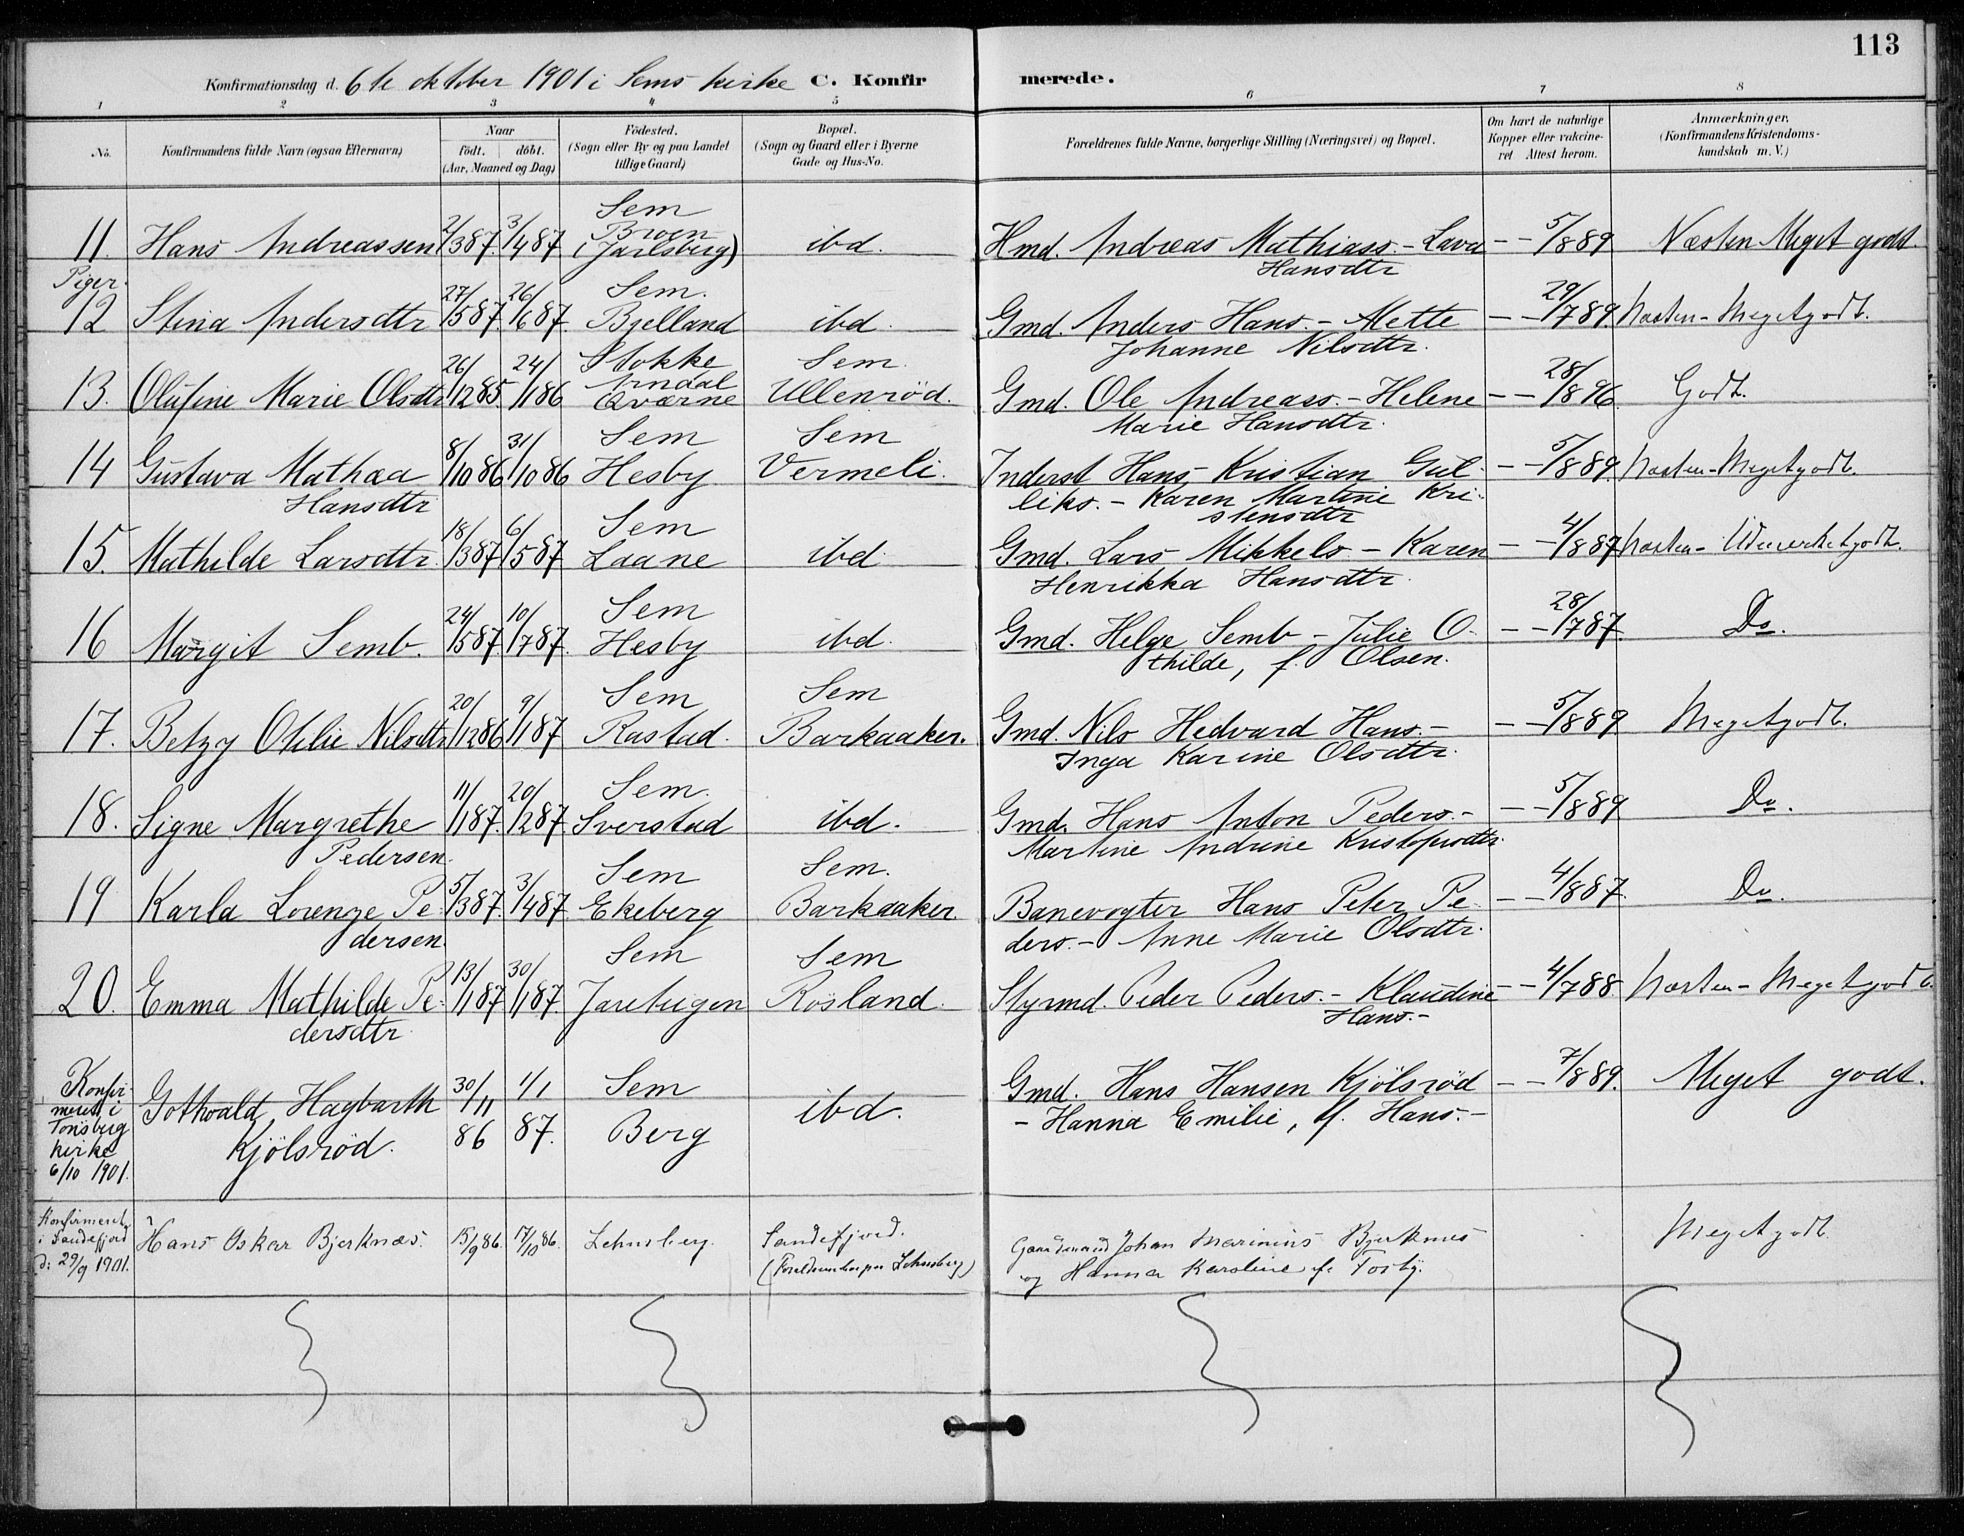 113
Konfirmationsdag d. 6te oktober 1901 i Sems kirke C. Konfir merede.
1 2 3 4 5 6 7 8
No. Konfirmandens fulde Navn (ogsaa Efternavn) Naar födt. döbt. (Aar, Maaned og Dag) Födested. (Sogn eller By og paa Landet tillige Gaard) Bopæl. (Sogn og Gaard eller i Byerne Gade og Hus-No. Forældrenes fulde Navne, borgerlige Stilling (Næringsvei) og Bopæl. Om havt de naturlige Kopper eller vakcineret Attest herom. Anmærkninger. (Konfirmandens Kristendomskundskab m. V.)
Sem
11. Hans Andreassen 2/3 87. 3/4 87 Broen (Jarlsberg) ibd. Hmd. Andreas Mathiass. - Lava - - 5/8 89 Næsten Meget godt
Hansdtr
Piger.
12 Stina Andersdtr 27/5 87. 26/6 87 Sem. Bjelland ibd. Gmd. Anders Hans. - Mette - - 29/7 89. Næsten - Megetgodt.
Johanne Nilsdtr.
13. Olufine Marie Olsdtr 26/12 85. 24/1 86 Stokke Arndal Qværne Sem. Ullenröd. Gmd. Ole Andreass. - Helene - - 28/8 96. Godt.
Marie Hansdtr.
14 Gustava Mathea 8/10 86 31/10 86 Sem Hesby Sem Vermeli. Inderst Hans Kristian Gul- - - 5/8 89. Næsten - Megetgodt.
Hansdtr liks. - Karen Martine Kri-
stensdtr
15. Mathilde Larsdtr. 18/3 87 6/5 87 Sem Laane ibd Gmd. Lars Mikkels. - Karen - - 4/8 87 Næsten - Udmerketgodt.
Henrikka Hansdtr.
16 Margit Semb. 24/5 87. 10/7 87. Sem Hesby ibd. Gmd. Helge Semb - Julie O- - - 28/7 87. Do.
thilde, f. Olsen.
17. Betzy Otilie Nilsdtr 20/12 86 9/1 87 Sem Rastad. Sem Barkaaker. Gmd. Nils Hedvard Hans. - - - 5/8 89 Megetgodt.
Inga Karine Olsdtr.
18. Signe Margrethe 11/1 87. 20/2 87 Sem. Sverstad ibd. Gmd. Hans Anton Peders. - - - 5/8 89 Do.
Pedersen. Martine Andrine Kristofersdtr.
19 Karla Lorenze Pe- 5/3 87. 3/4 87 Sem Ekeberg Sem. Barkaaker. Banevogter Hans Peter Pe- - - 4/8 87. Do.
dersen. ders. - Anne Marie Olsdtr.
20. Emma Mathilde Pe- 13/1 87 30/1 87. Sem Jareteigen Sem Rösland. Styrmd. Peder Peders. - Klaudine - - 4/7 88. Næsten - Megetgodt.
dersdtr Hans. -
Konfirmeret i Tönsberg kirke 6/10 1901. Gothvald Hagbarth Kjölsröd. 30/11 86 1/1 87. Sem Berg ibd. Gmd. Hans Hansen Kjölsröd - - 7/8 89. Meget godt.
- Hanna Emilie, f. Hans. -
Konfirmeret i Sandefjord d: 29/9 1901. Hans Oskar Bjerknæs. 15/9 86. 17/10 86. Lehnsberg. Sandefjord. Gaardmand Johan Marinius Bjerknes Megetgodt.
og Hanna Karoline f. Forby.